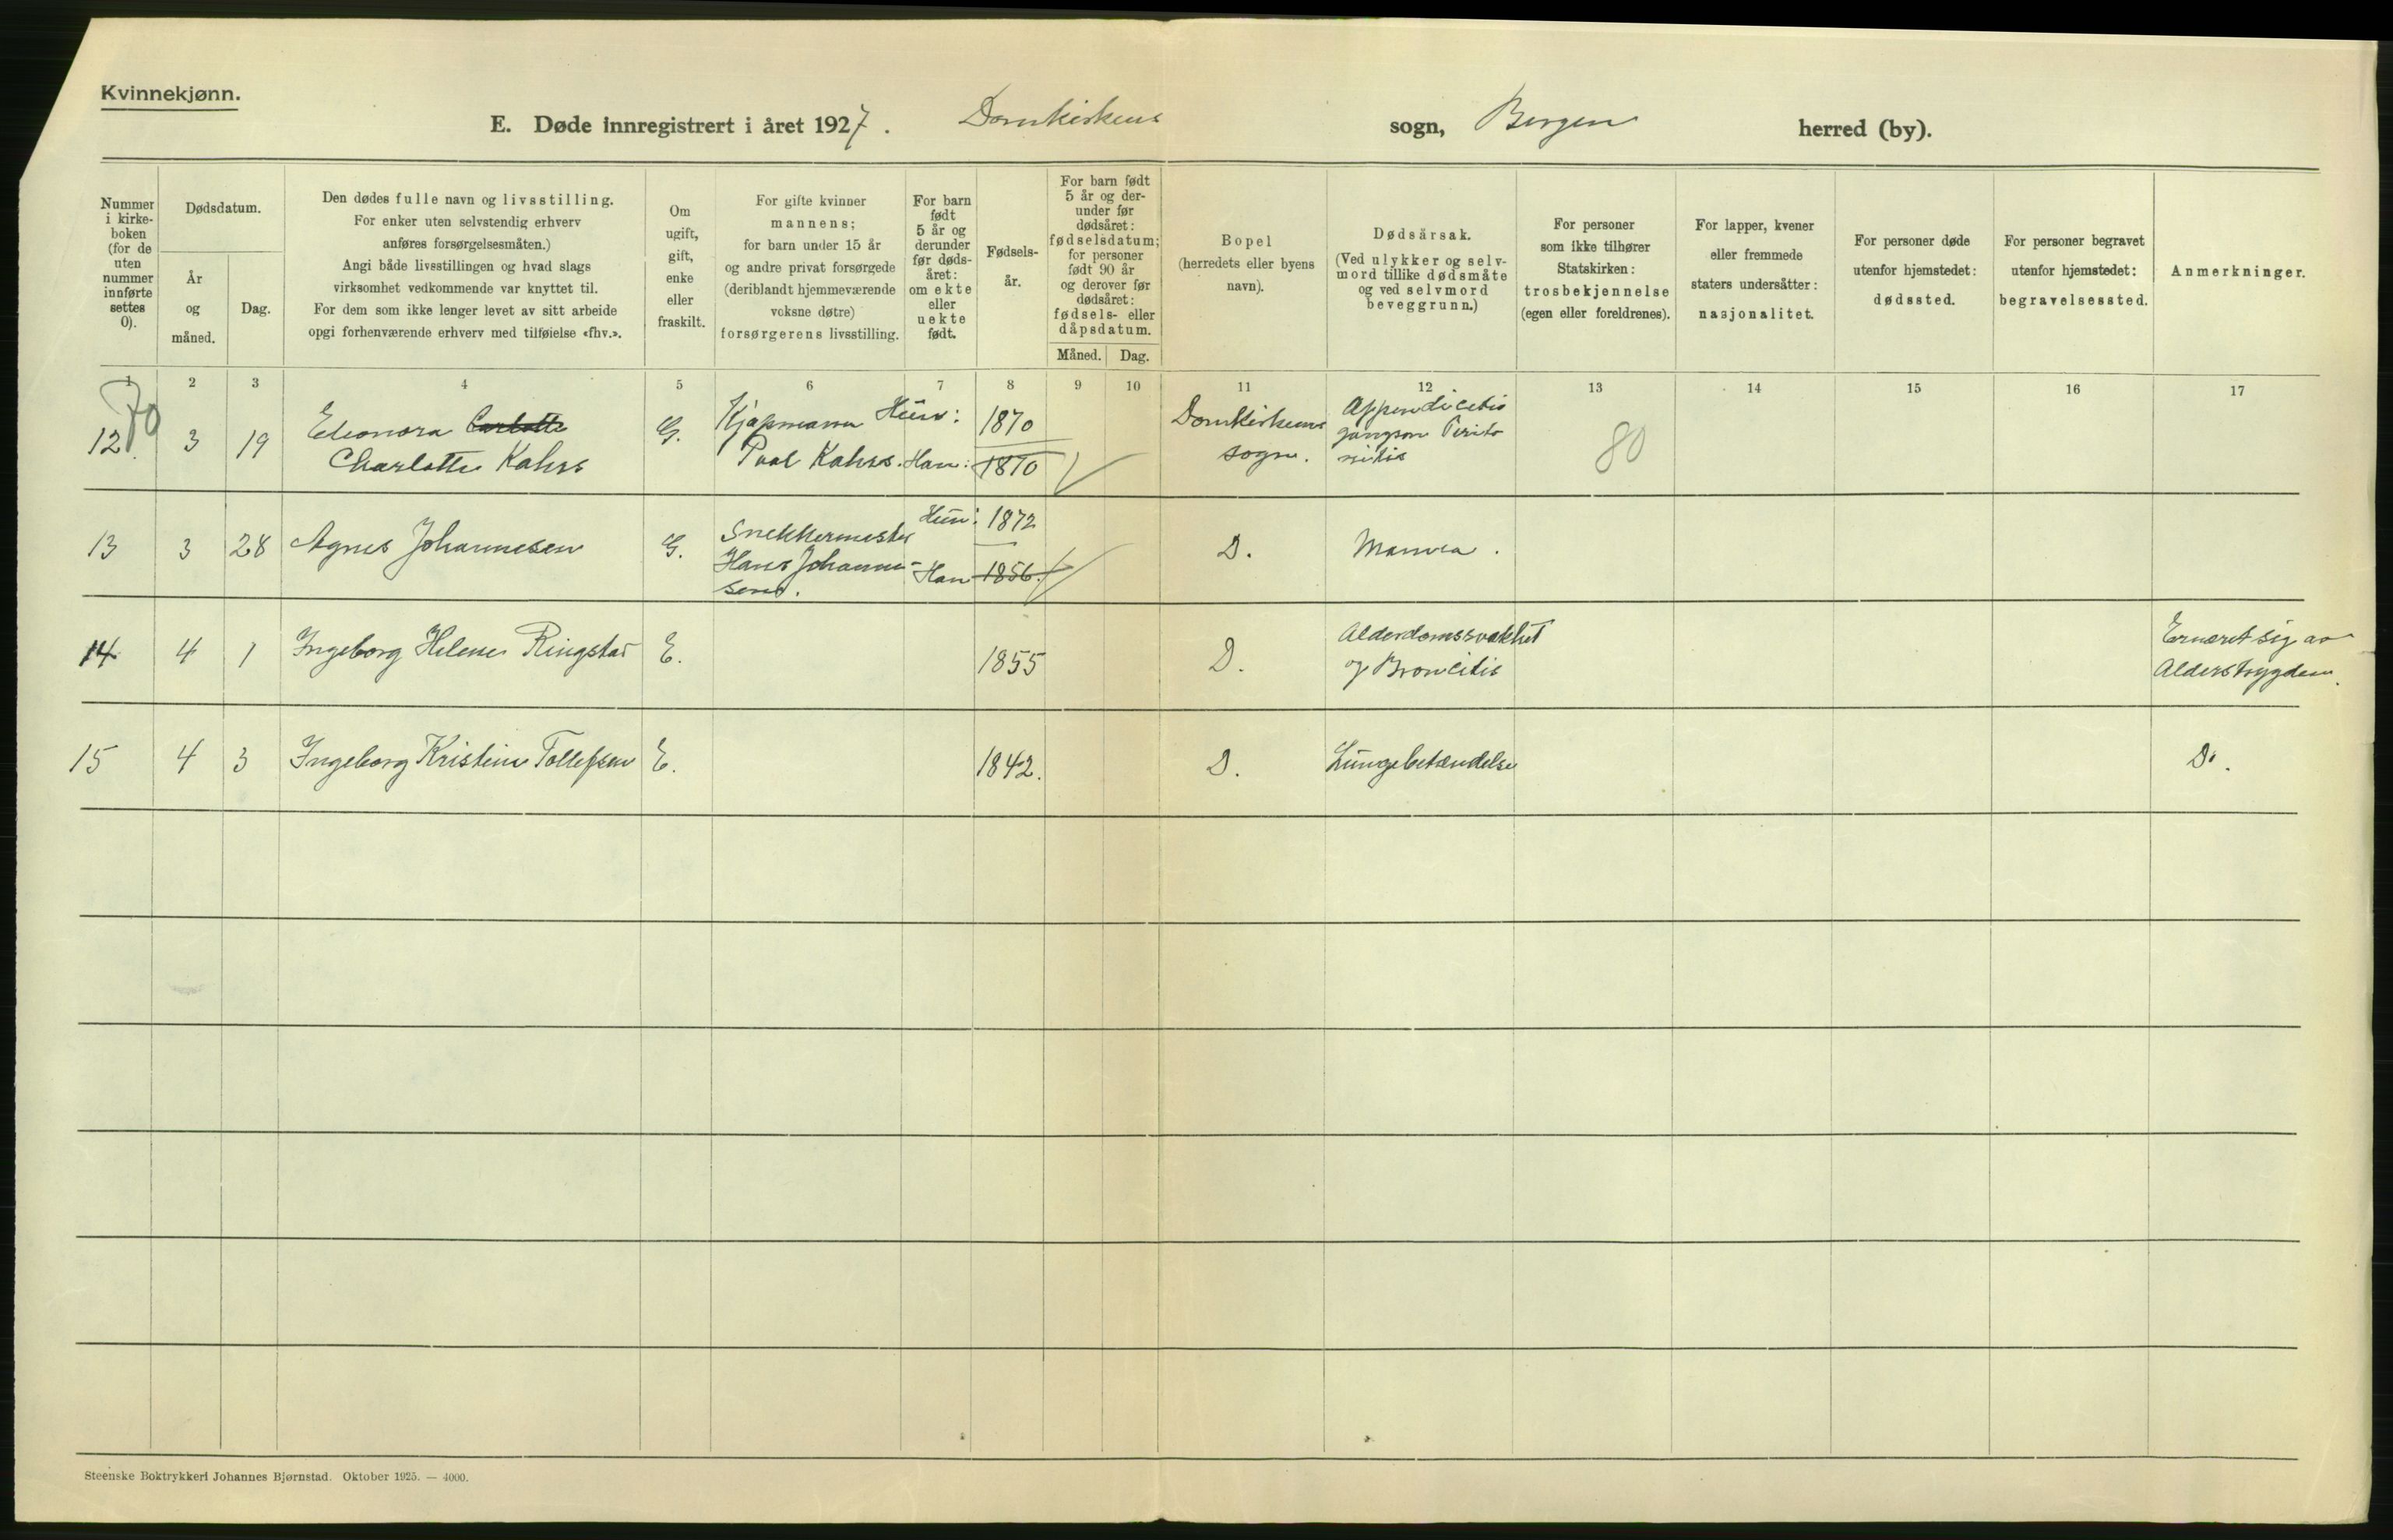 Kvinnekjønn.
E. Døde innregistrert i året 1927. Domkirkens sogn, Bergen herred (by).
Nummer
i kirke-
boken
(for de
uten
nummer
innførte
settes
0).
Dødsdatum.
År
og
måned.
Dag.
Den dødes fulle navn og livsstilling.
For enker uten selvstendig erhverv
anføres forsørgelsesmåten.)
Angi både livsstillingen og hvad slags
virksomhet vedkommende var knyttet til.
For dem som ikke lenger levet av sitt arbeide
opgi forhenværende erhverv med tilføielse «fhv.».
Om
ugift,
gift,
enke
eller
fraskilt.
For gifte kvinner
mannens;
for barn under 15 år
og andre privat forsørgede
(deriblandt hjemmeværende
voksne døtre)
forsørgerens livsstilling.
For barn
født
5 år og
derunder
før døds-
året:
om ekte
eller
uekte
født.
Fødsels-
år.
For barn født
5 år og der-
under før
dødsåret:
fødselsdatum;
for personer
født 90 år
og derover før
dødsåret:
fødsels- eller
dåpsdatum.
Måned. Dag.
Bopel
(herredets eller byens
navn).
Dødsårsak.
(Ved ulykker og selv-
mord tillike dødsmåte
og ved selvmord
beveggrunn.)
For personer
som ikke tilhører
Statskirken:
trosbekjennelse
(egen eller foreldrenes).
For lapper, kvener
eller fremmede
staters undersåtter:
nasjonalitet.
For personer døde
utenfor hjemstedet:
dødssted.
For personer begravet
utenfor hjemstedet:
begravelsessted.
Anmerkninger.
1 2 3 4 5 6 7 8 9 10 11 12 13 14 15 16 17
70
12. 3 19 Eleonora Carlotte G. Kjøpmann Hun: 1870 Domkirkens Appendicitis
Charlotte Kahrs Poul Kahrs. Han: 1870 sogn. gangren Perito
nitis
80
13 3 28 Agnes Johannesen G. Snekkermester Hun: 1872 D.
Hans Johanne- Han 1856.
sen.
14 4 1 Ingeborg Helene Ringstad E. 1855 D. Alderdomssvakhet Ernæret sig av
og Broncitis Alderstrygden.
15 4 3 Ingeborg Kristine Tollefsen E. 1842. D. Lungebetændelse D.
Steenske Boktrykkeri Johannes Bjørnstad. Oktober 1925. — 4000.